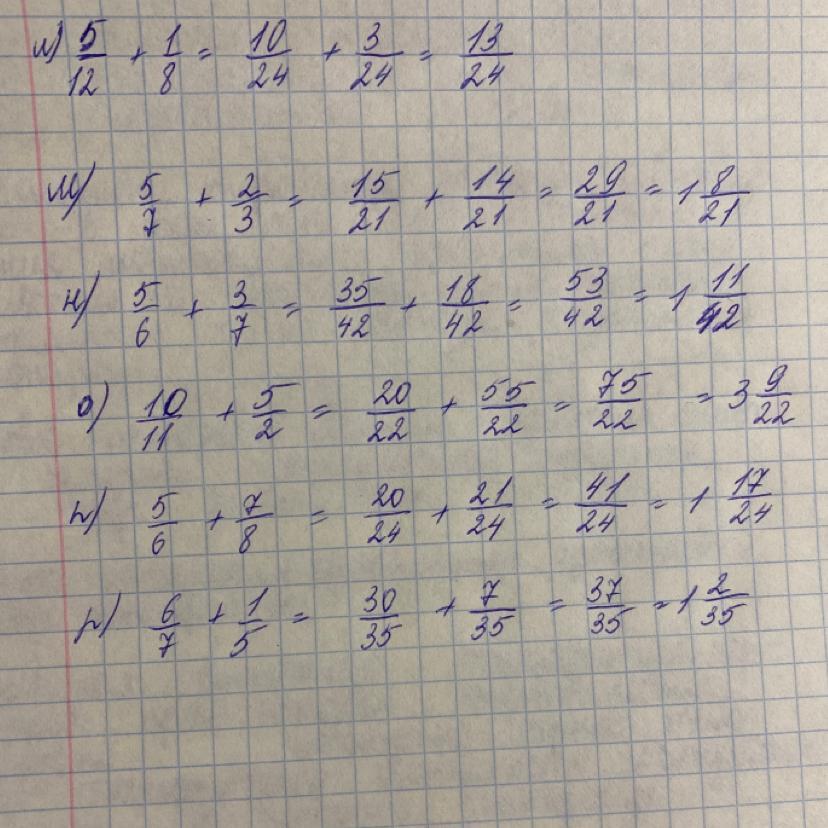 л) 5/12 + 1/8 = 10/24 + 3/24 = 13/24
м) 5/7 + 2/3 = 15/21 + 14/21 = 29/21 = 1 8/21
н) 5/6 + 3/7 = 35/42 + 18/42 = 53/42 = 1 11/42
о) 10/11 + 5/2 = 20/22 + 55/22 = 75/22 = 3 9/22
п) 5/6 + 7/8 = 20/24 + 21/24 = 41/24 = 1 17/24
р) 6/7 + 1/5 = 30/35 + 7/35 = 37/35 = 1 2/35